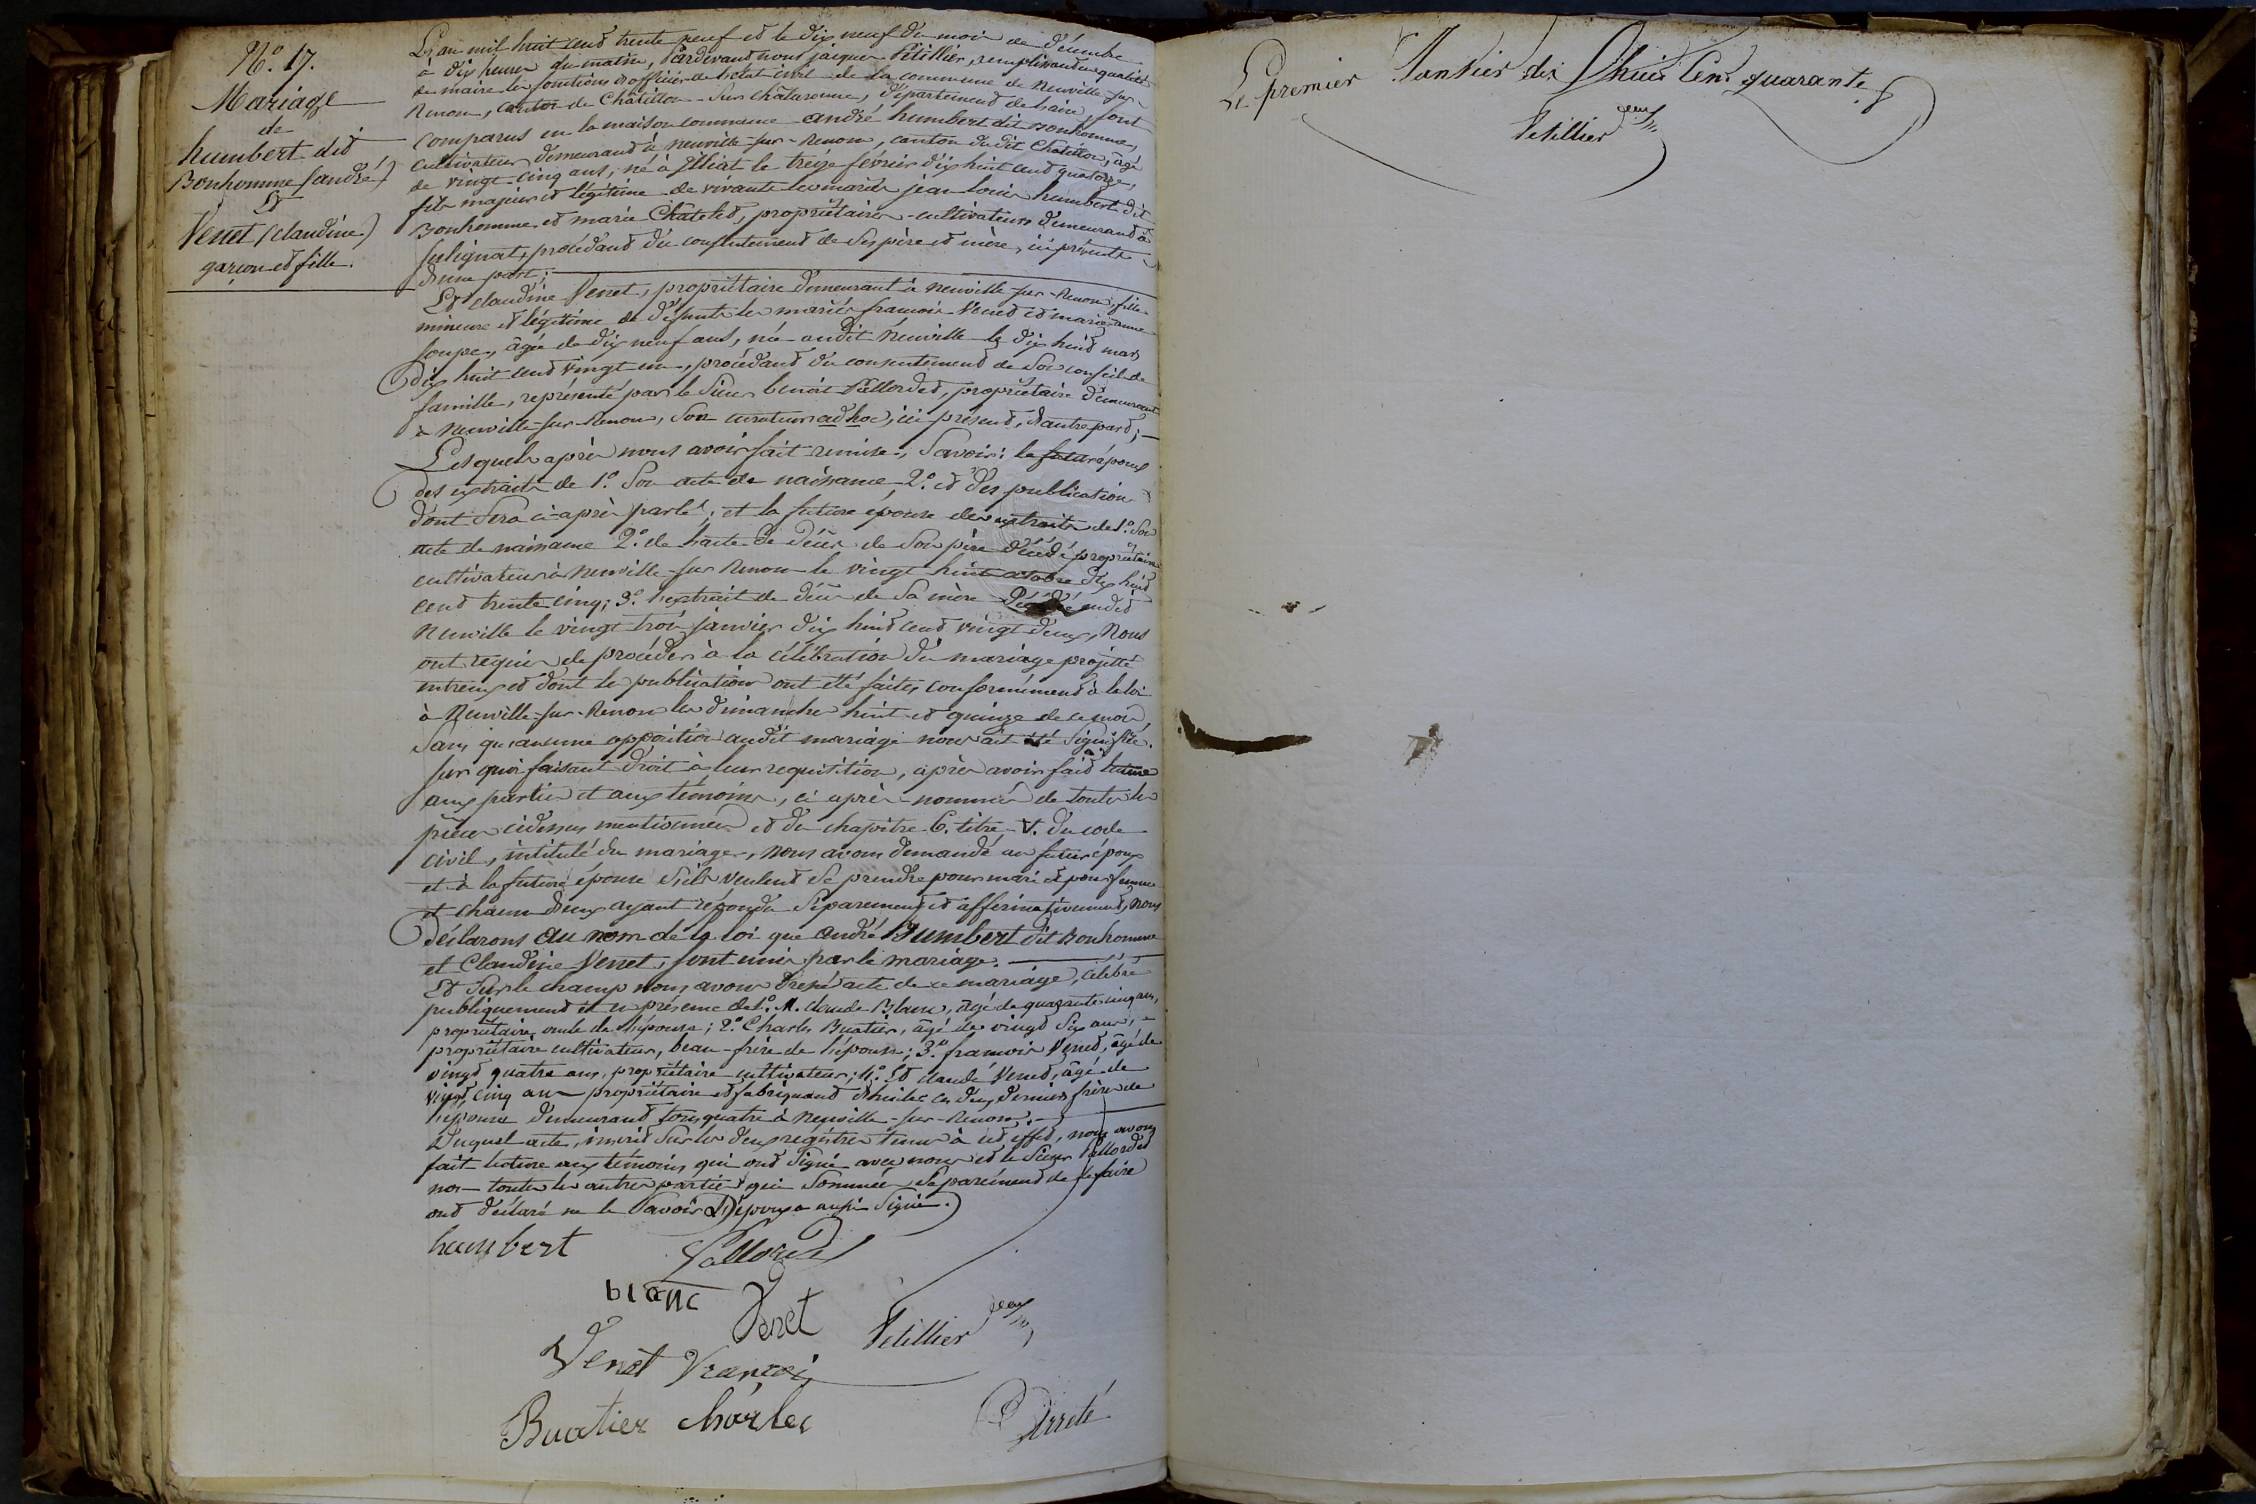 N.o 17.
Mariage
de
humbert dit
Bonhomme (andré)
Et
Venet (claudine)
garçon et fille.
L'an mil huit cent trente neuf et le dix neuf du mois de décembre
à dix heures du matin, Pardevant nous jacques Petillier, remplissant en qualité
de maire les fonctions d'officier de l'état civil de la commune de Neuville-sur-
Renom, canton de Châtillon-sur-chalaronne, département de l'ain, sont
comparus en la maison commune andré humbert dit Bonhomme,
cultivateur demeurant à neuville-sur-Renom, canton du dit Châtillon, âgé
de vingt-cinq ans, né à illiat le treize février dix huit cent quatorze,
fils majeur et légitime de vivants les mariés jean louis humbert dit
Bonhomme et marie Châtelet, propriétaires-cultivateurs demeurant à
sulignat, procédant du consentement de ses père et mère, ici présents
d'une part;
Et claudine Venet, propriétaire demeurant à neuville-sur-Renom, fille
mineure et légitime de défunts les mariés francois Venet et marie anne
soupe, âgée de dix neuf ans, née audit neuville le dix huit mars
dix huit cent vingt un, procédant du consentement de son conseil de
famille, représenté par le sieur benoit Pallordet, propriétaire demeurant
à Neuville-sur-Renom, son curateur ad hoc, ici présent, d'autre part;
Lesquels après nous avoir fait remise, Savoir: le futur époux
des extraits de 1.o Son acte de naissance, 2.o et des publications
dont sera ci-après parlé, et la future épouse des extraits de 1.o Son
acte de naissance 2.o de l'acte de décès de Son père décédé propriétaire
cultivateur à Neuville-sur Renom le vingt huit octobre dix huit
cent trente cinq; 3.o l'extrait de décès de Sa mère décédée audit
Neuville le vingt trois janvier dix huit cent vingt deux, Nous
ont requis de procéder à la célébration du mariage projetté
entreux et dont les publications ont été faites conformément à la loi
à Neuville-sur-Renom les dimanches huit et quinze de ce mois,
Sans qu'aucune opposition audit mariage nous ait été signifiée.
sur quoi faisant droit à leur requisition, après avoir fait lecture
aux parties et aux témoins, ci après nommés de toutes les
pièces cidessus mentionnées et du chapitre 6. titre V. du code
civil, intitulé du mariage, nous avons demandé au futur époux
et à la future épouse s'ils veulent se prendre pour mari et pour femme
et chacun d'eux ayant répondu séparement et affirmativement, nous
déclarons au nom de la loi que andré Humbert dit Bonhomme
et Claudine Venet, sont unis par le mariage.
Et sur le champ nous avons dressé acte de ce mariage, célébré
publiquement et en présence de 1.o M. claude Blanc, âgé de quarante cinq ans,
propriétaire, oncle de l'épouse; 2.o Charles Buatier, âgé de vingt six ans,
propriétaire cultivateur, beau-frère de l'épouse; 3.o francois Venet, âgé de
vingt quatre ans, propriétaire cultivateur; 4.o Et claude Venet, âgé de
vingt cinq ans propriétaire et fabriquant d'huiles ces deux derniers frères de
l'épouse demeurant tous quatre à Neuville-sur-Renom.
Duquel acte, inscrit sur les deux registres tenus à cet effet, nous avons
fait lecture aux témoins qui ont signé avec nous et le sieur Pallordet
non toutes les autres parties qui sommées séparément de le faire
ont déclaré ne le savoir L'époux a aussi signé.
humbert Pallordet
blanc Venet Petillier
Venet Francois
Buatier charles
Arreté
Le premier Janvier dix Huit Cent quarante.
Petillier